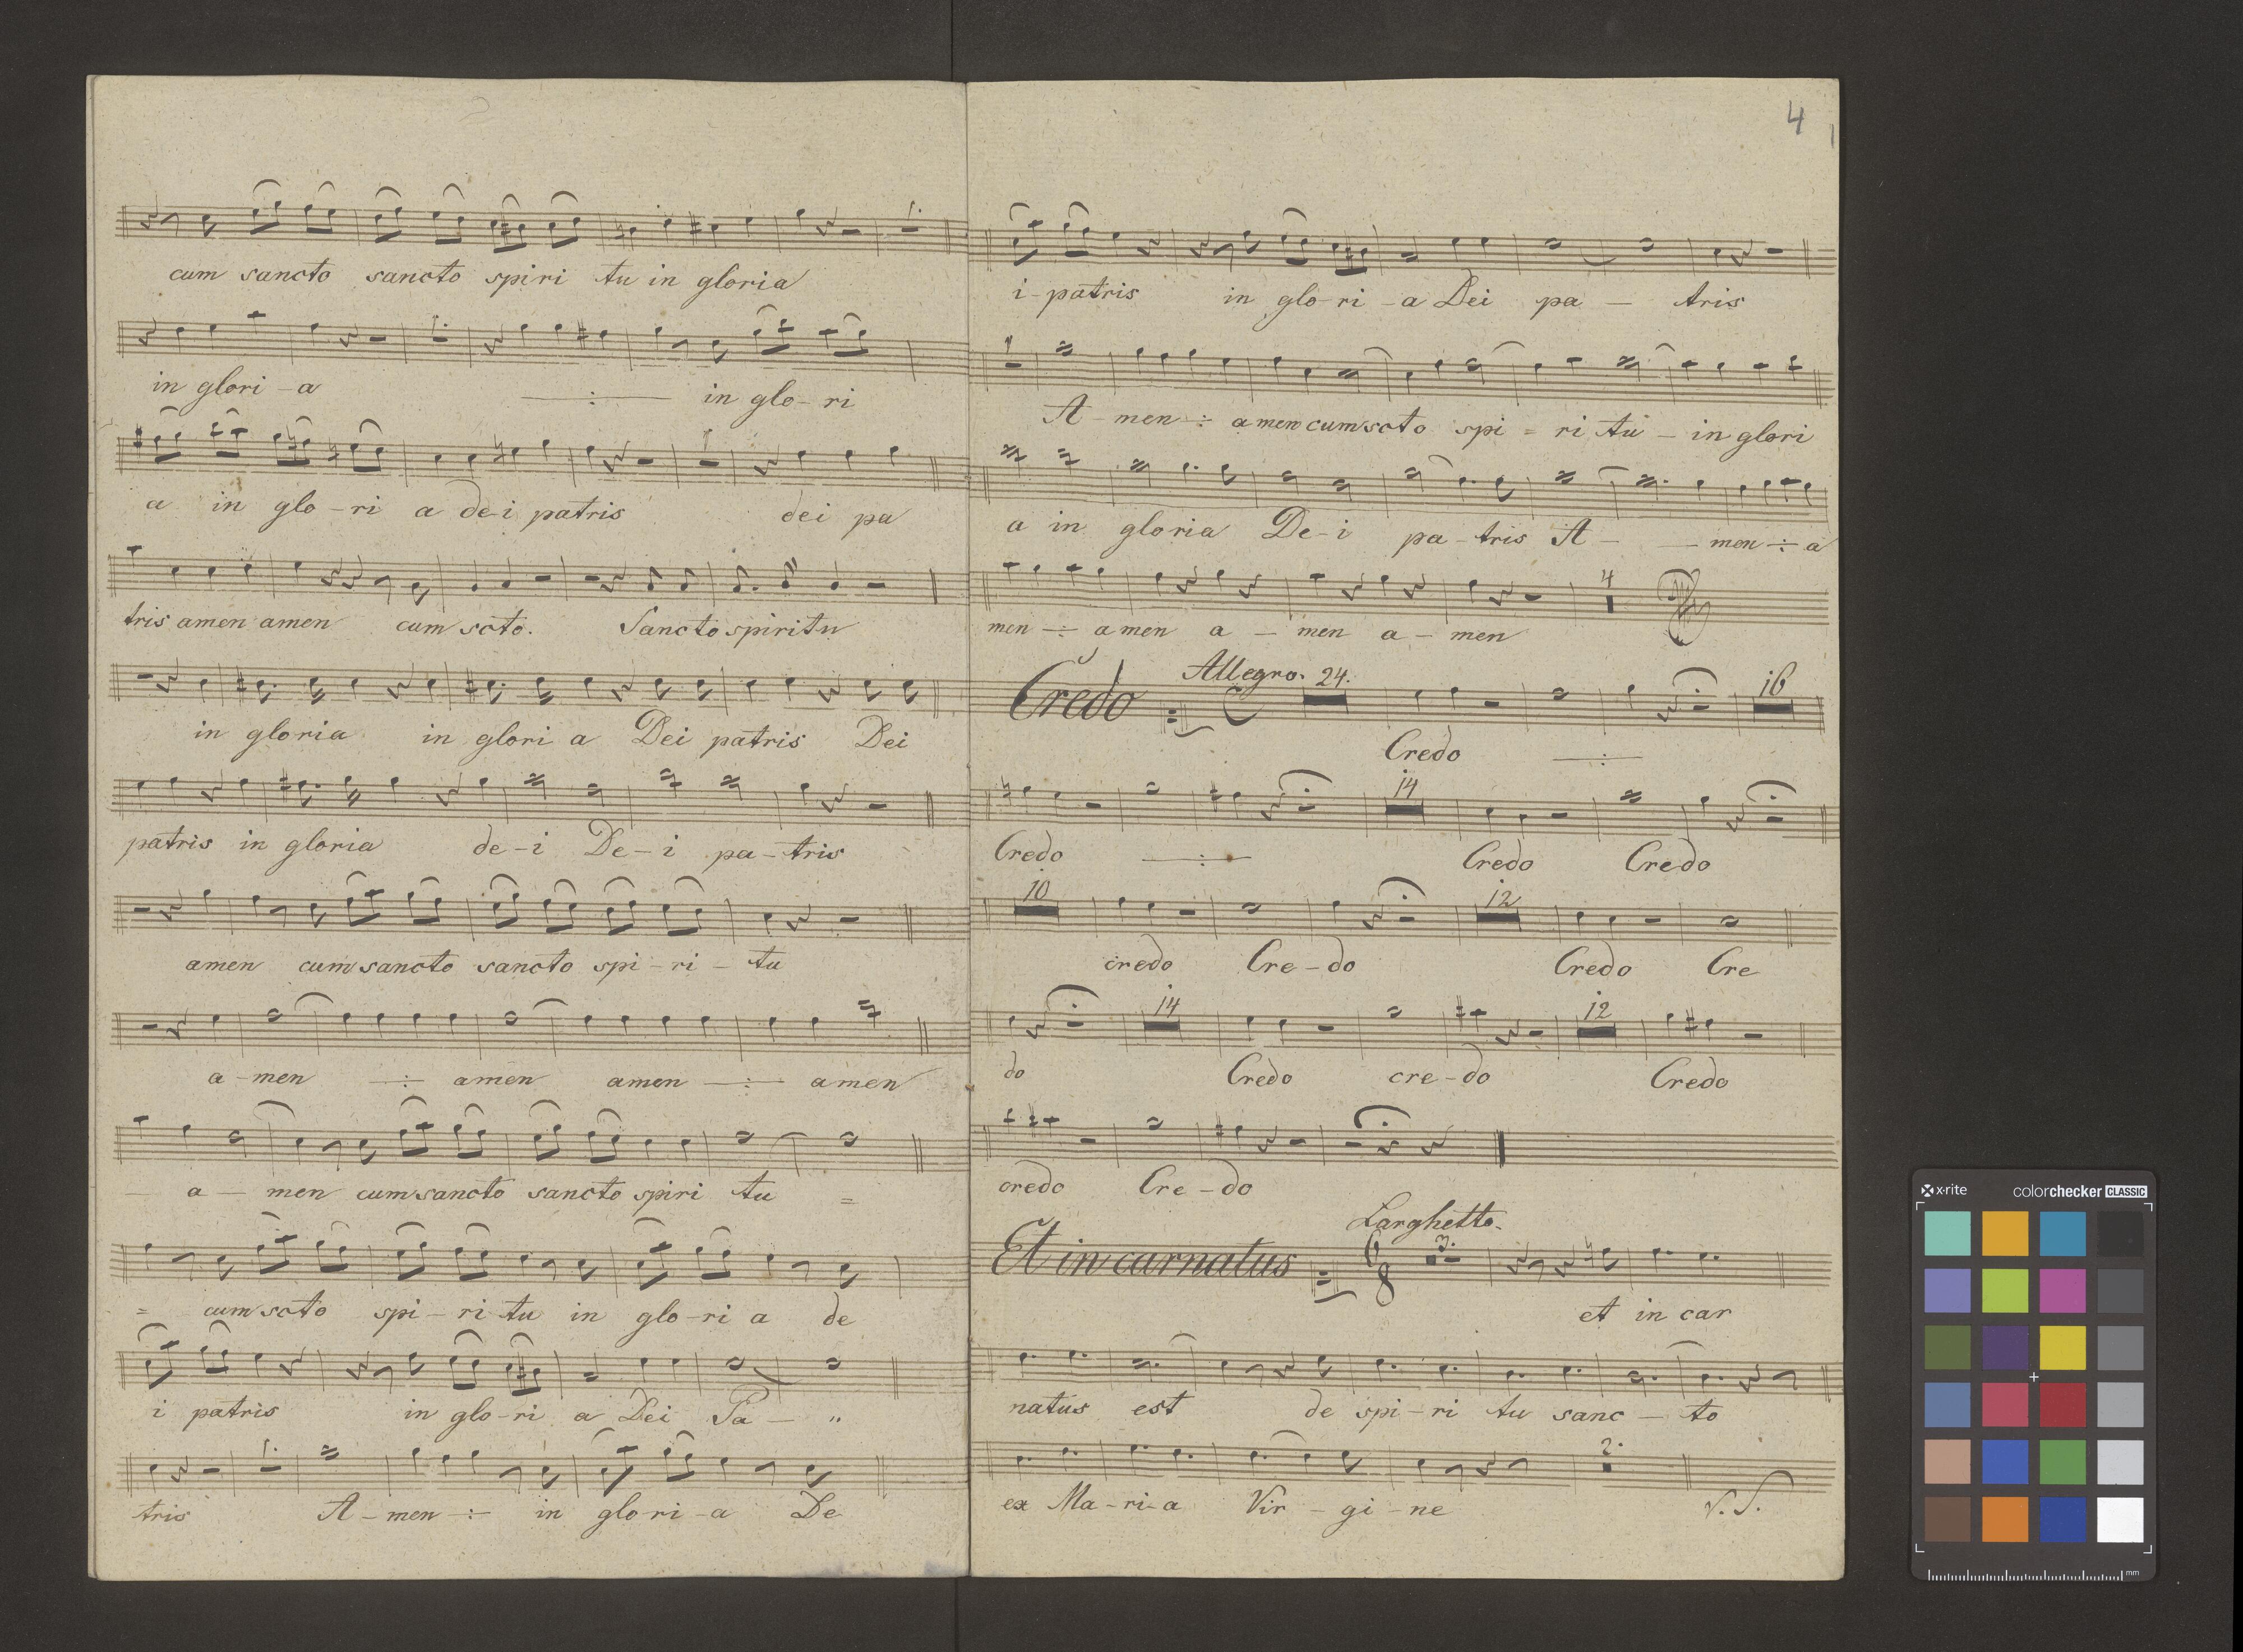 cum sancto sancto spiri tu in gloria
in glori - a -:- in glo - ri
a in glo - ri a de-i patris dei pa
tris amen amen cum scto. Sancto spiritu
in gloria in glori a Dei patris Dei
patris in gloria de-i De-i pa-tris
amen cum sancto sancto spi - ri - tu
a-men -:- amen amen -:- amen
a - men cum sancto sancto spiri tu =
= cum scto spi - ri tu in glo-ri a de
i patris in glo-ri a Dei Pa - "
tris A-men -:- in glo-ri-a De
4
i-patris in glo-ri-a Dei pa - tris
A-men -:- amen cum scto spi = ri tu - in glori
a in gloria De-i pa-tris A - - men -:- a
4
men -:- amen a - men a - men
Allegro. 24. 16
Credo
Credo -:-
14
Credo -:- Credo Credo
10 12
credo Cre-do Credo Cre
14 12
do Credo cre-do Credo
credo Cre-do
Larghetto.
Et in carnatus 6 8 3.
et in car
natus est de spi-ri tu sanc - to
2.
ex Ma-ri-a Vir - gi - ne V. S.
x·rite colorchecker CLASSIC
mm